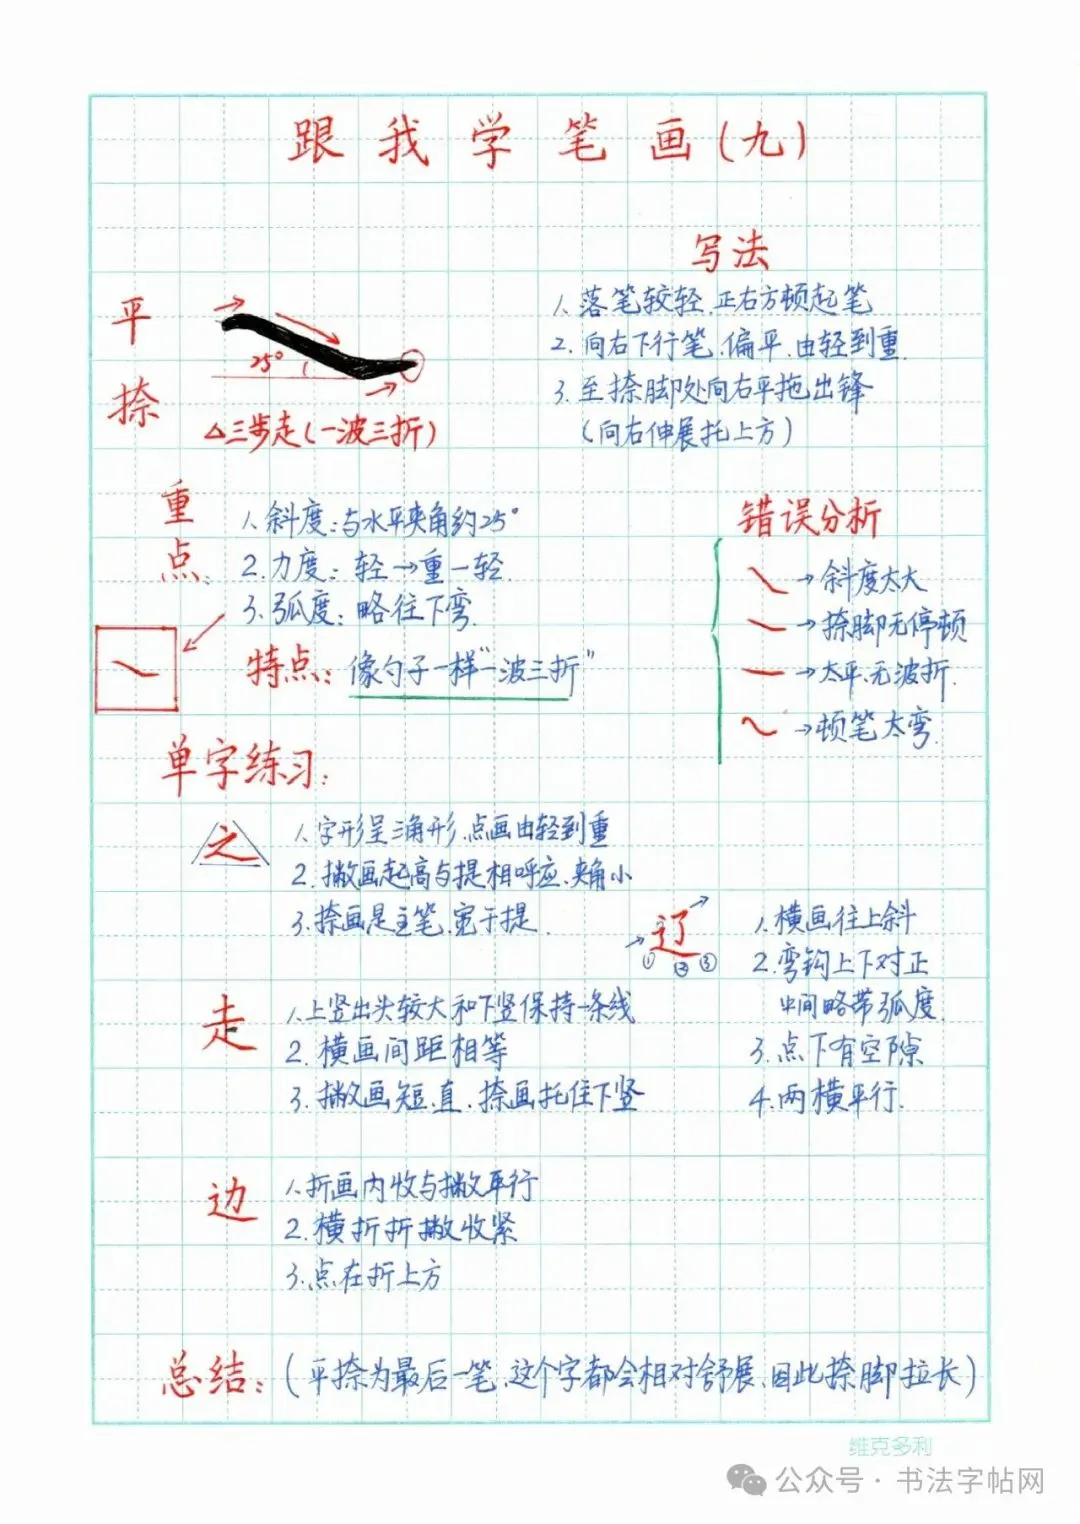 跟我学笔画(九)
平捺
25°
△三步走(一波三折)
写法
1.落笔较轻.正右方顿起笔
2.向右下行笔.偏平.由轻到重.
3.至捺脚处向右平拖出锋
(向右伸展托上方)
重点:
1.斜度:与水平夹角约25°
2.力度:轻→重—轻.
3.弧度:略往下弯.
特点:像勺子一样"一波三折"
错误分析
→斜度太大
→捺脚无停顿
→太平.无波折.
→顿笔太弯.
单字练习:
之
1.字形呈三角形.点画由轻到重
2.撇画起高与提相呼应.夹角小
3.捺画是主笔.宽于提.
辽
①②③
1.横画往上斜
2.弯钩上下对正
中间略带弧度.
3.点下有空隙
4.两横平行.
走
1.上竖出头较大和下竖保持一条线
2.横画间距相等
3.撇画短.直.捺画托住下竖
边
1.折画内收与撇平行
2.横折折撇收紧
3.点在折上方
总结:(平捺为最后一笔.这个字都会相对舒展.因此捺脚拉长)
维克多利
公众号·书法字帖网